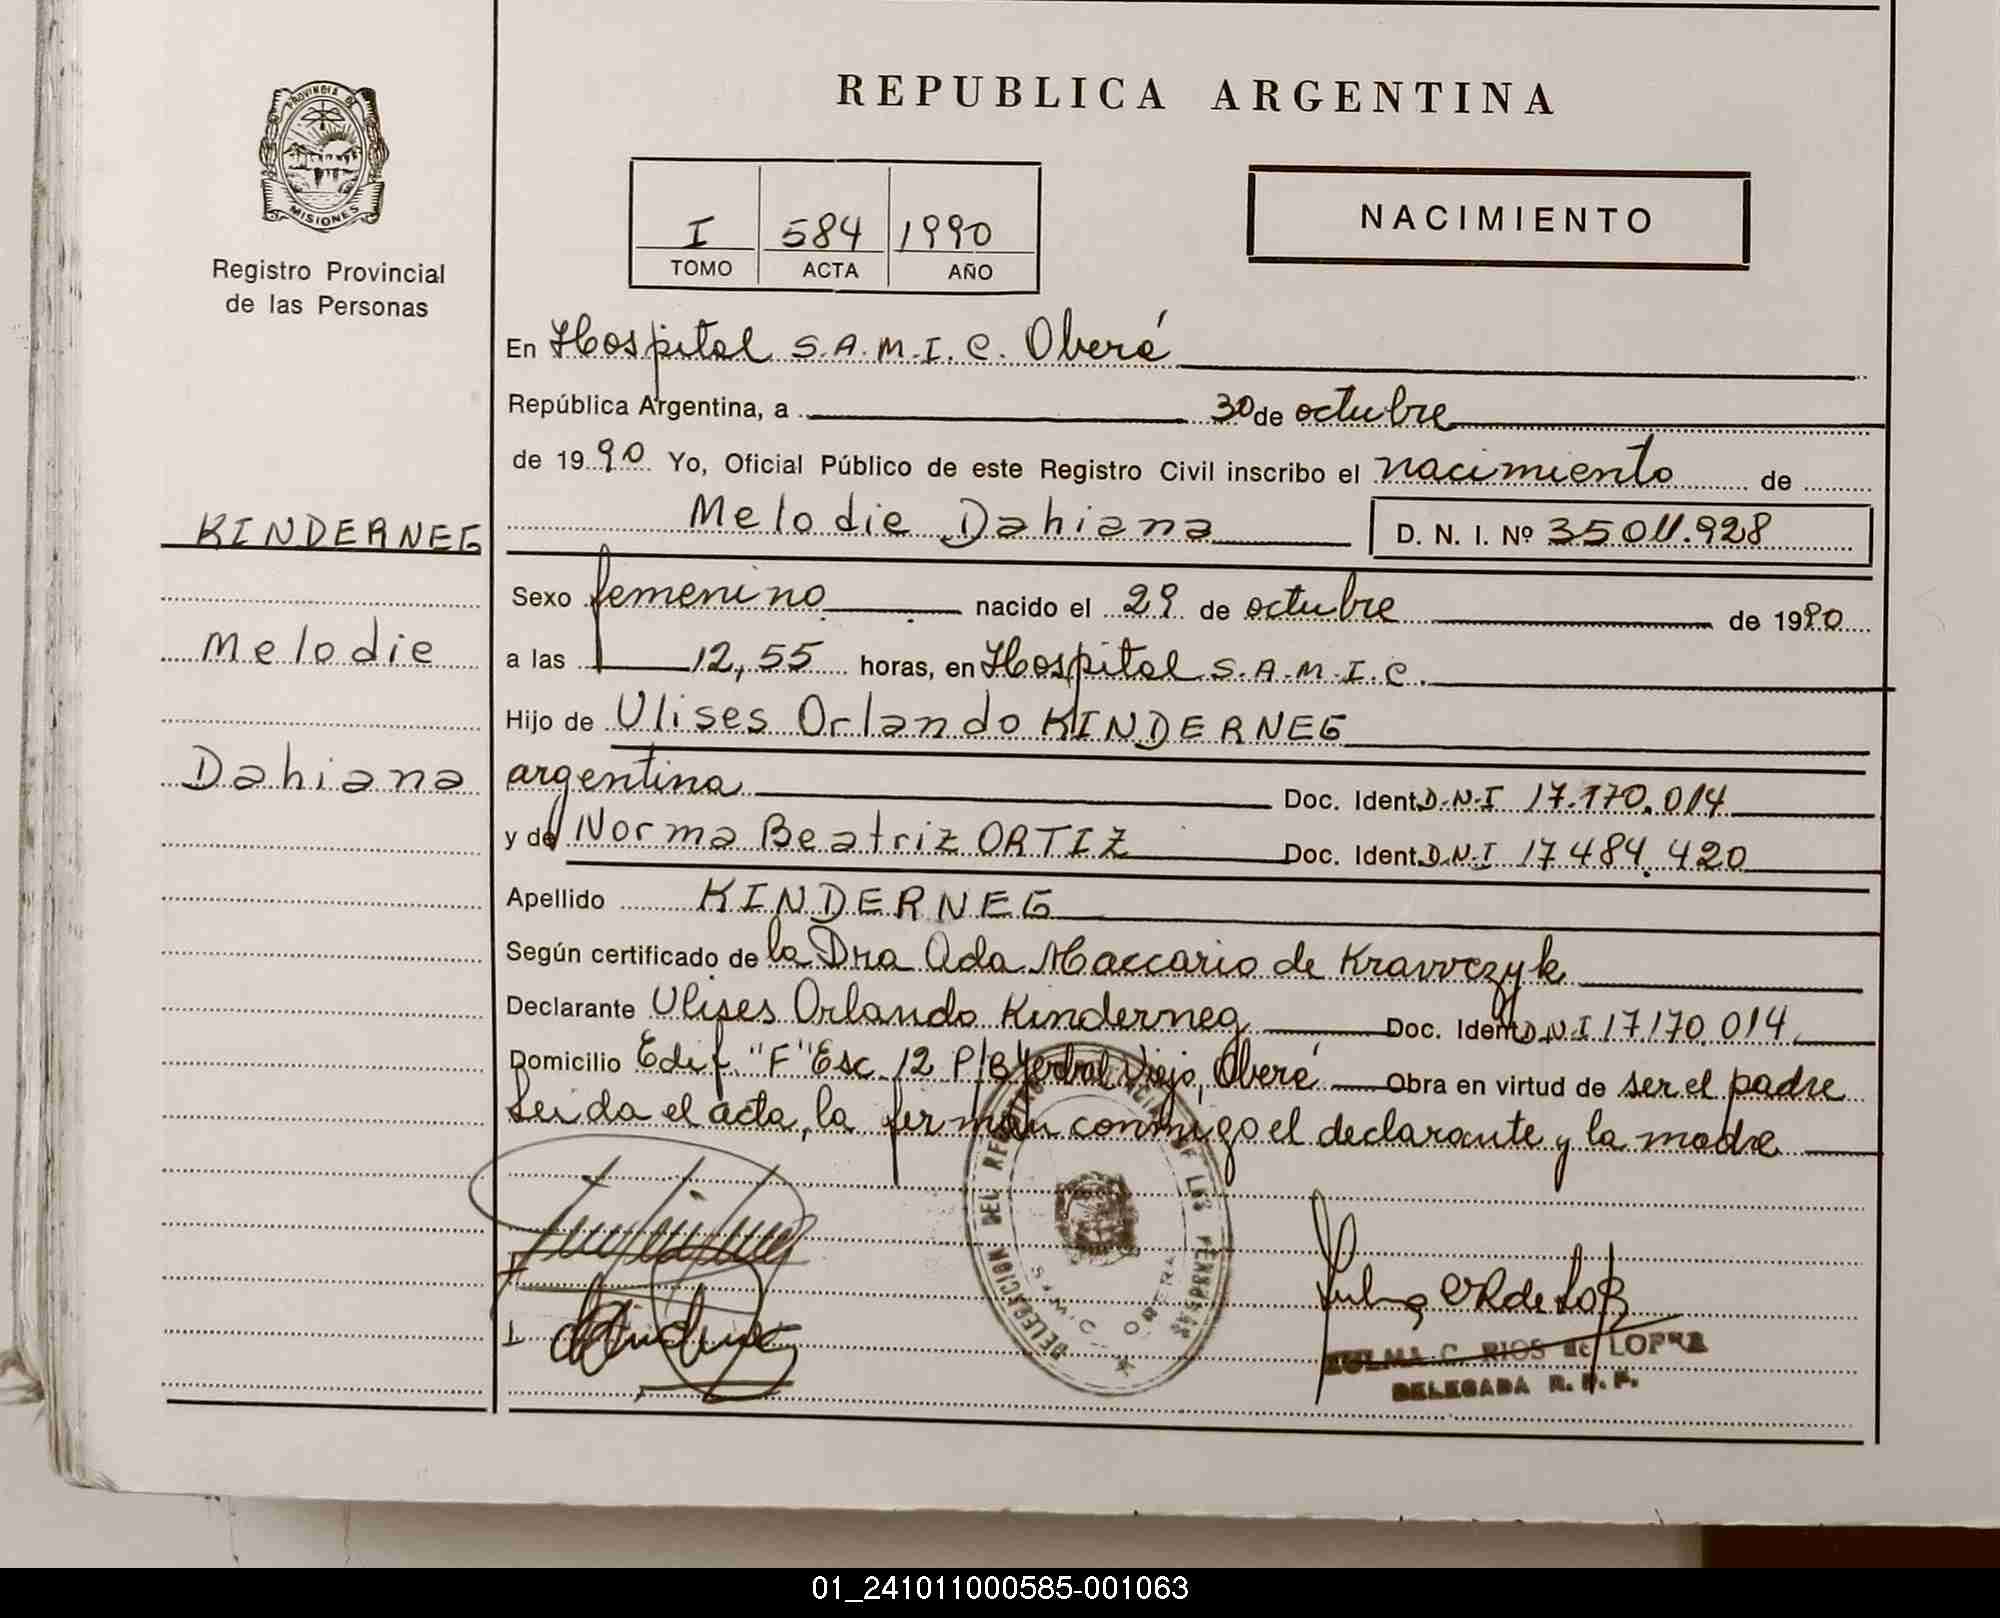 REPUBLICA ARGENTINA
PROVINCIA DE
MISIONES
Registro Provincial
de las Personas
I 584 1990
TOMO ACTA AÑO
NACIMIENTO
En Hospital S.A.M.I.C. Oberá
República Argentina, a 30 de octubre
de 1990 Yo, Oficial Público de este Registro Civil inscribo el nacimiento de
KINDERNEG
Melodie Dahiana D. N. I. Nº 35011.928
Sexo femenino nacido el 29 de octubre de 1990
Melodie
a las 12,55 horas, en Hospital S.A.M.I.C.
Hijo de Ulises Orlando KINDERNEG
Dahiana
argentina Doc. Ident. D.N.I 17.170.014
y de Norma Beatriz ORTIZ Doc. Ident. D.N.I 17.484.420
Apellido KINDERNEG
Según certificado de la Dra Ada Maccario de Kravvczyk
Declarante Ulises Orlando Kinderneg Doc. Ident. D.N.I 17170.014
Domicilio Edif. "F" Esc 12 P/B Yerbal Viejo, Oberá Obra en virtud de ser el padre
Leida el acta, la firman conmigo el declarante y la madre
DELEGACION DEL REGISTRO PROVINCIAL DE LAS PERSONAS
S.A.M.I.C. OBERA
ZULMA C. RIOS de LOPEZ
DELEGADA R. P. P.
01_241011000585-001063